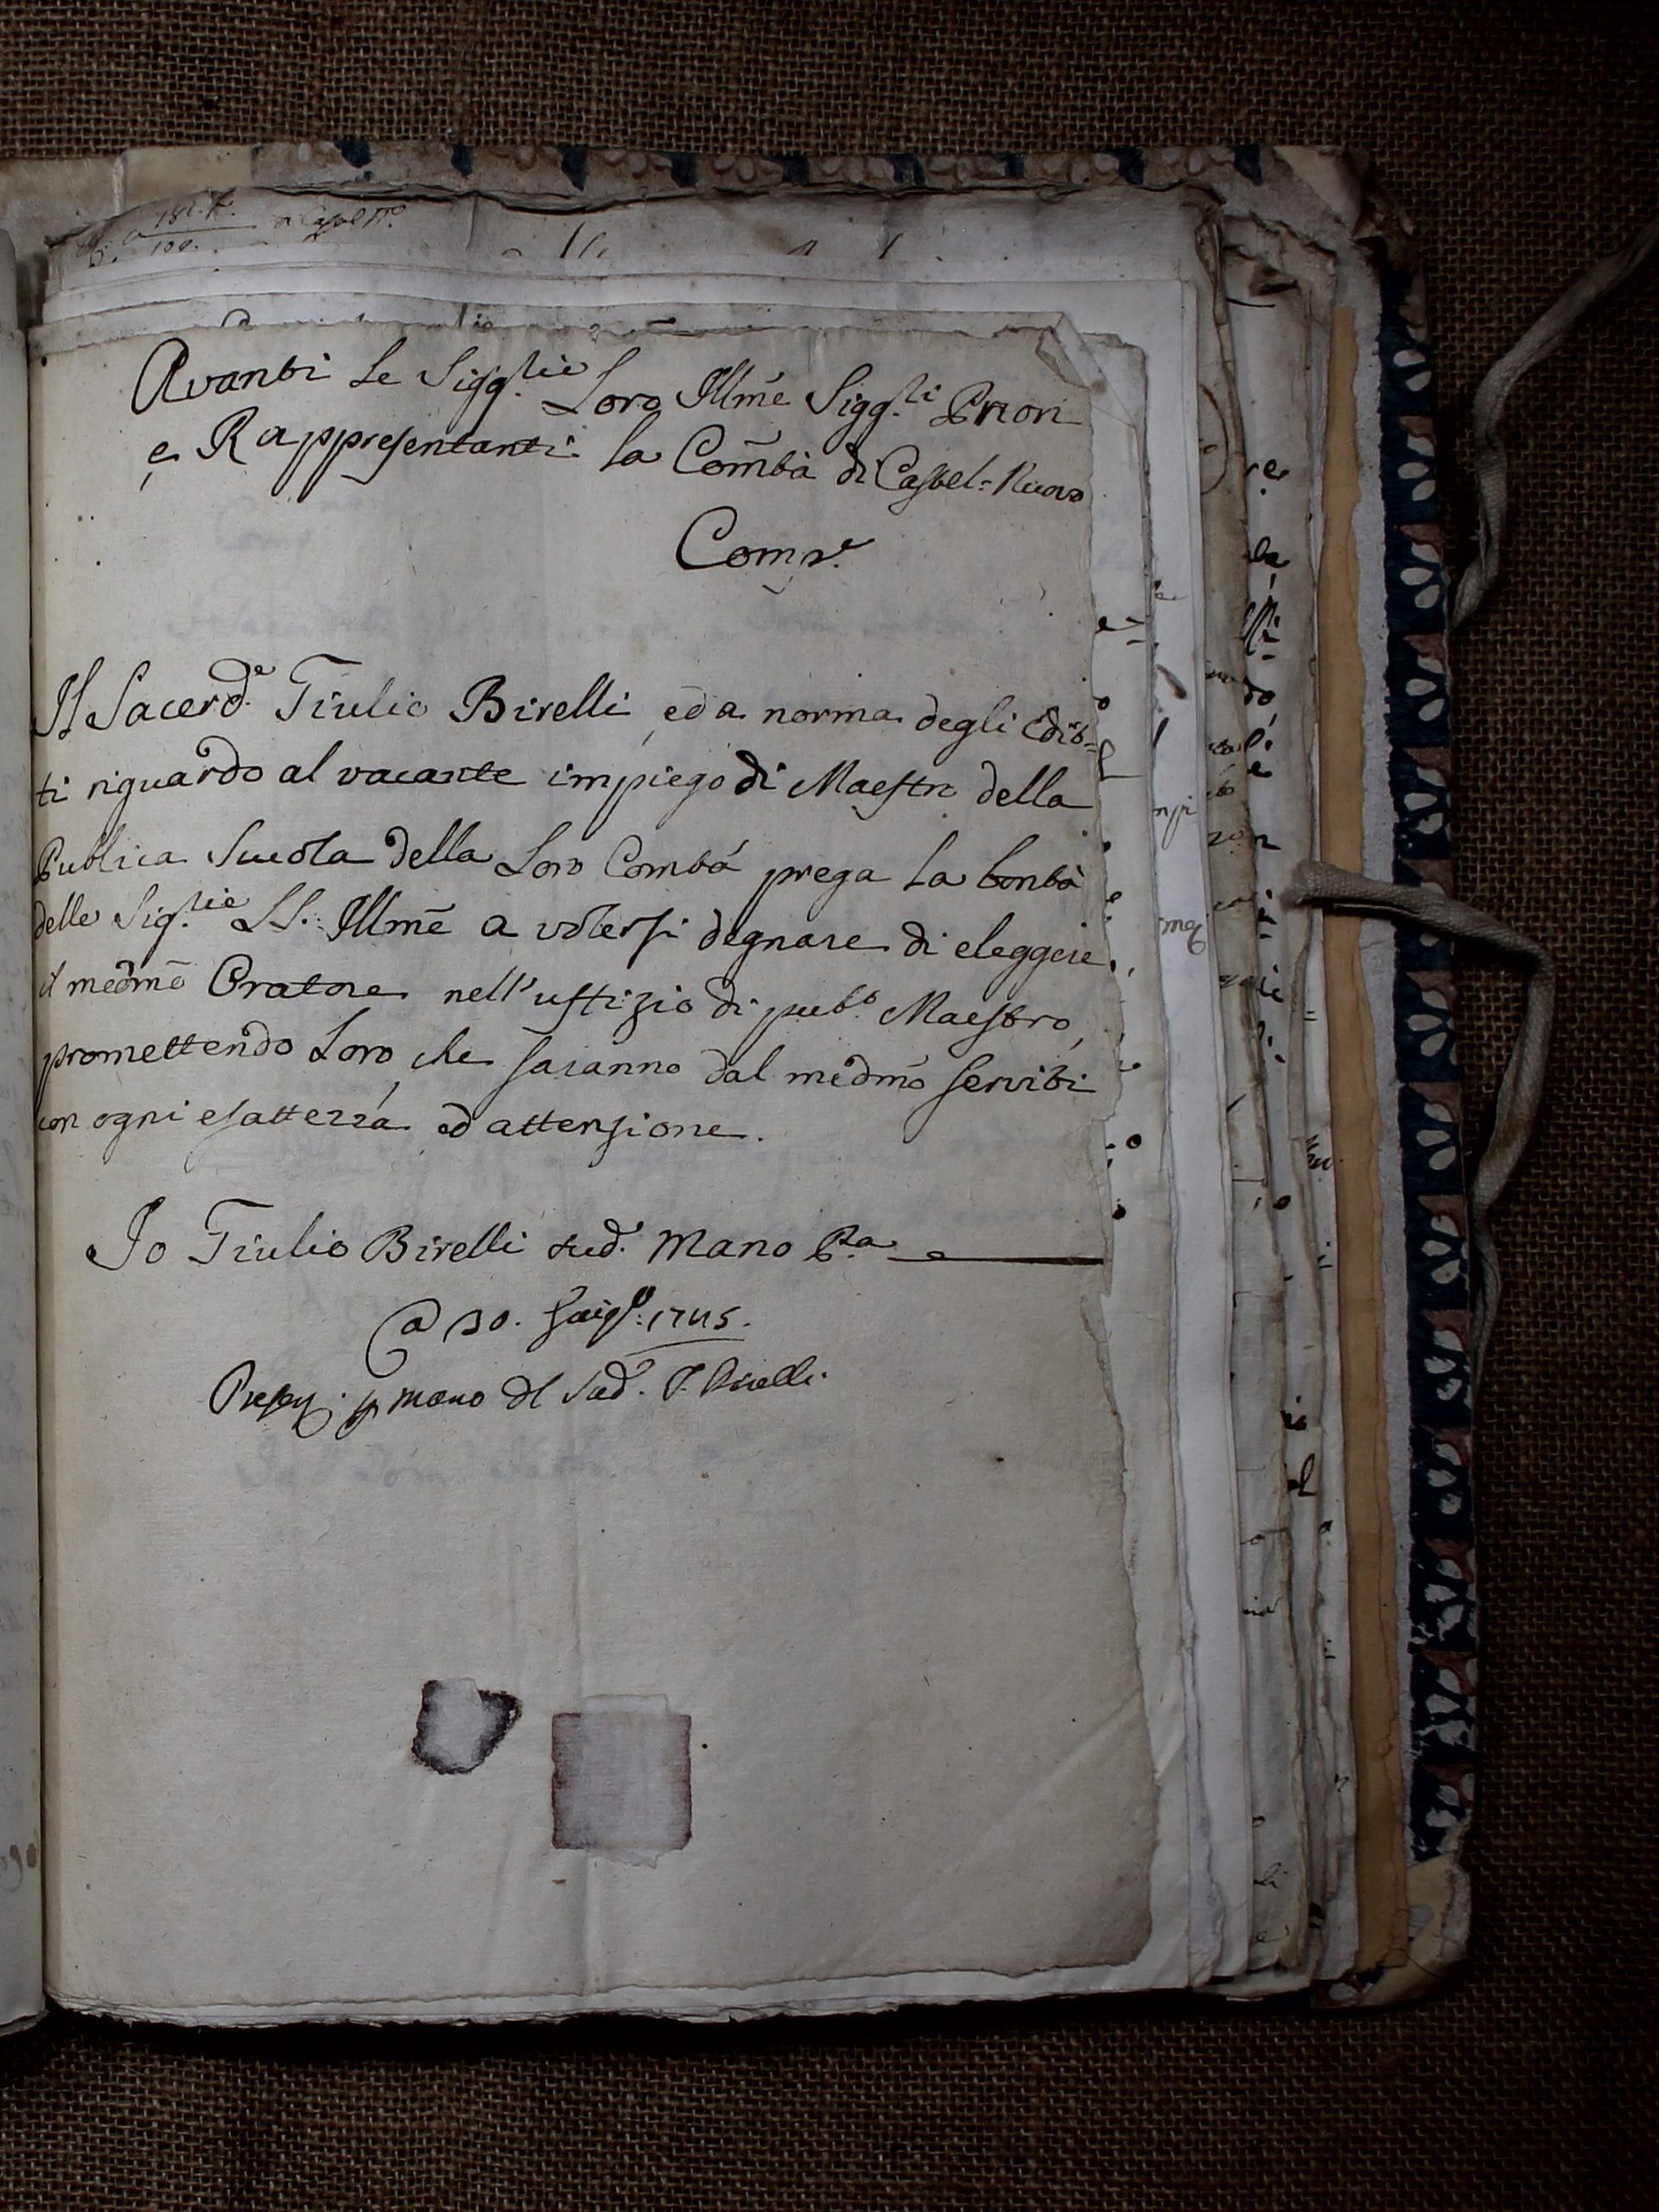 Avanti Le Sigg.lie Loro Illme Sigg.li Priori
e Rappresentanti la Com̃tà di Castel=Nuovo
Comp.e
Il Sacerd.e Giulio Birelli, ed a norma degli Edit=
ti riguardo al vacante impiego di Maestro della
Publica Scuola della Loro Comtà prega la bontà
delle Sig.lie LL. Illme a volersi degnare di eleggere
il medmo Oratore nell'uffizio di pub.o Maestro,
promettendo Loro, che saranno dal medmo serviti
con ogni esattezza, ed attenzione.
Io Giulio Birelli sud.o Mano P.a
a 30. 1745.
Presen. p mano del Sud.o G. Birelli